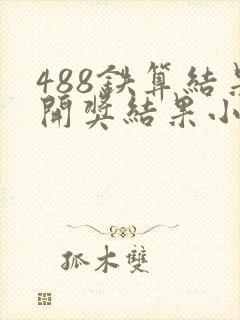 488鉄算結果
開奨結果小
孤木雙